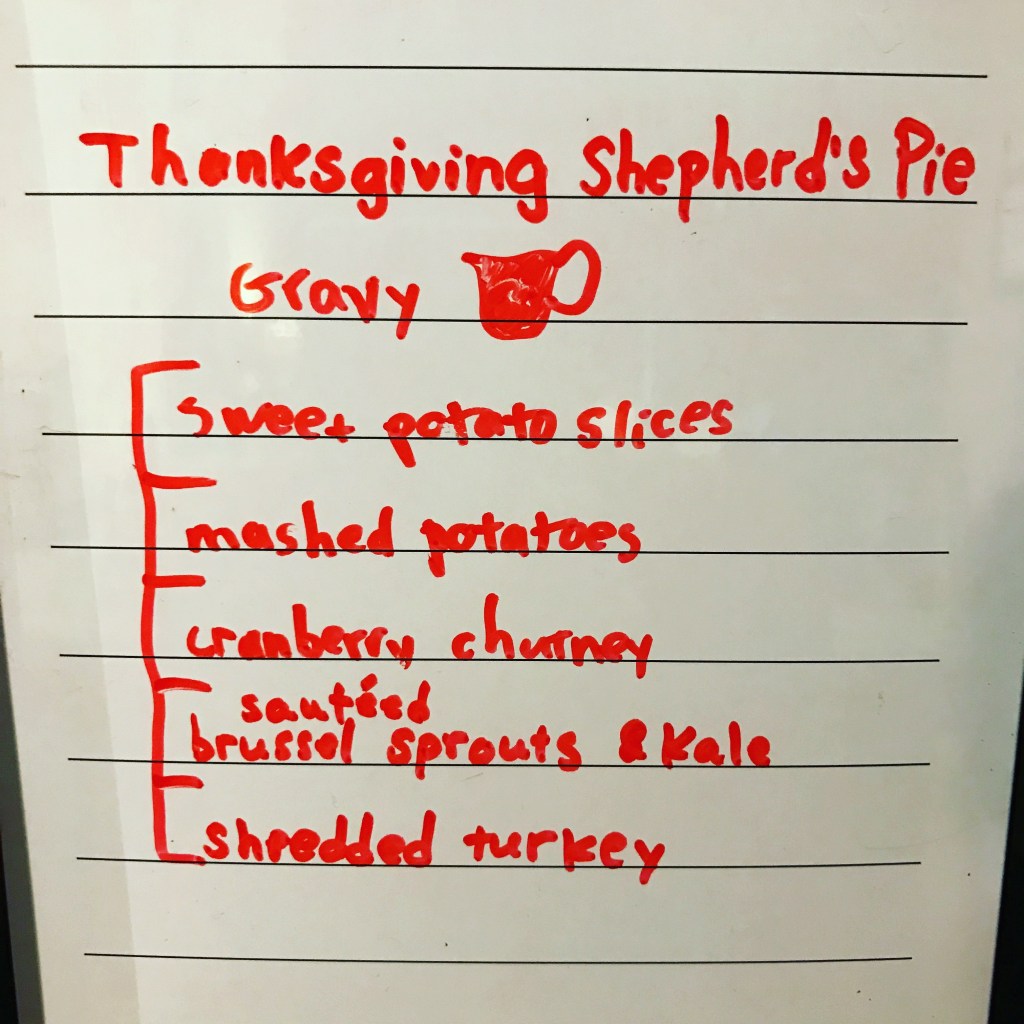 Thanksgiving Shepherd's Pie
Gravy
sweet potato slices
mashed potatoes
cranberry chutney
sautéed
brussel sprouts & kale
shredded turkey